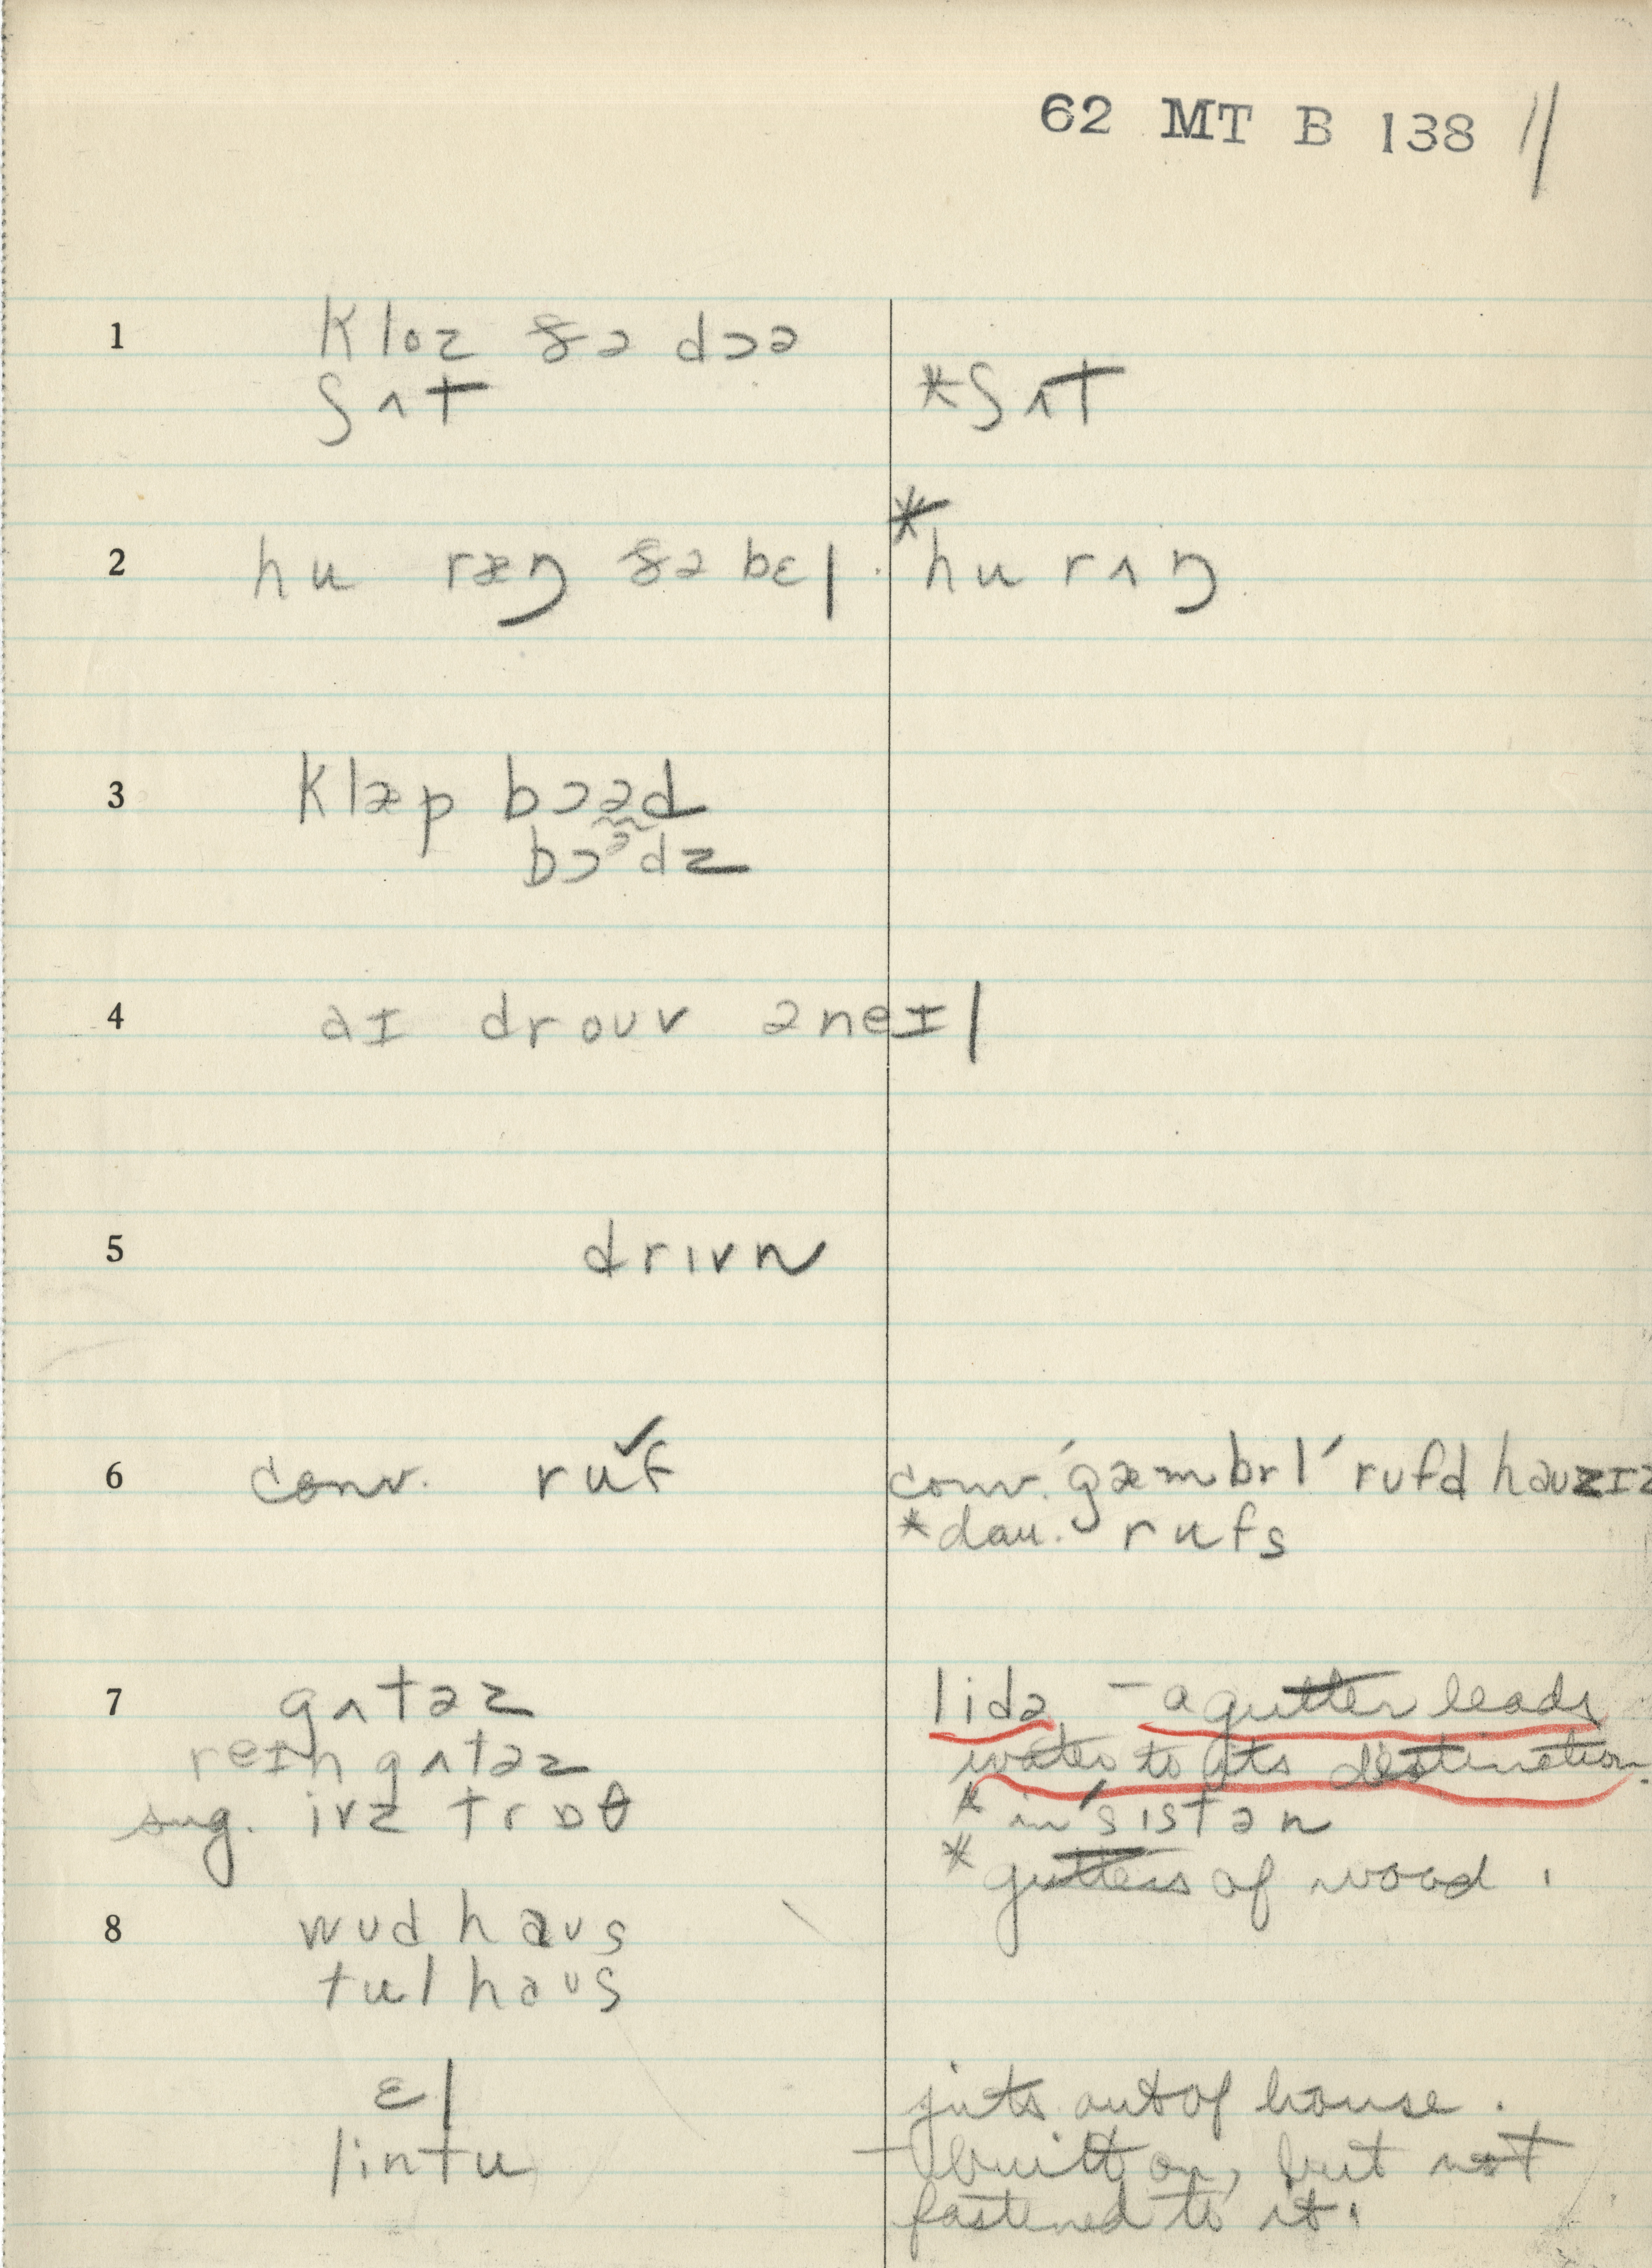 62 MT B 138 //
1 kloz ðə dɔə
ʃʌt *ʃʌt
2 hu ræŋ ðə bɛl *hu rʌŋ
3 klæp bɔəd
bɔᵊdz
4 aɪ droʊv ə neɪl
5 drɪvn
6 conv. ruf ✓ conv. 'gæmbrl' rufd haʊzɪz
*dau. rufs
7 gʌtəz lidə – a gutter leads
reɪn gʌtəz water to its destination.
sug. ivz trɒθ * in'sɪstən
* gutters of wood.
8 wʊd haʊs
tul haʊs
ɛl juts out of house.
lintu – built on, but not
fastened to it.